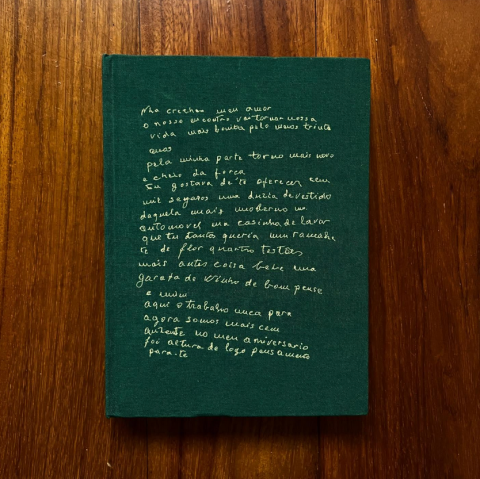 Nha cretcheu meu amor
o nosso encontro vai tornar nossa
vida mais bonita pelo menos trinta
anos
pela minha parte torno mais novo
e cheio da força
Eu gostava de te oferecer cem
mil segaros uma duzia de vestido
daquela mais moderno um
automovel uma casinha de lavar
que tu tanto queria um ramalhe
te de flor quatro tostões
mais antes coisa bebe uma
garafa de vinho de bom pense
e mim
aqui o trabalho nunca para
agora somos mais cem
no meu aniversario
foi altura de logo pensamento
para te